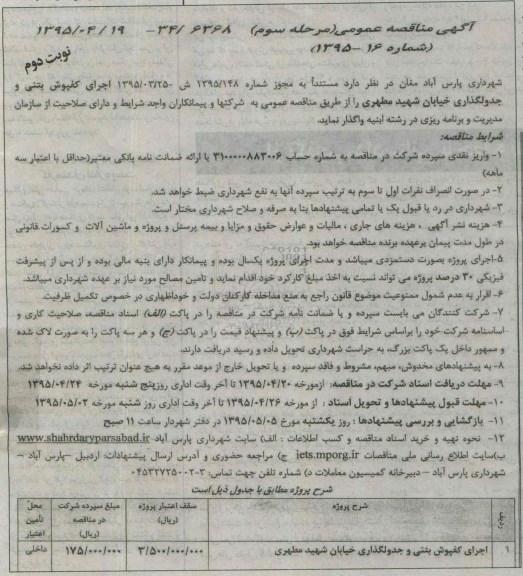 آگهی مناقصه عمومی(مرحله سوم) ۳۴/۶۳۶۸- ۱۳۹۵/۰۴/۱۹
(شماره ۱۶-۱۳۹۵)
نوبت دوم
شهرداری پارس آباد مغان در نظر دارد مستنداً به مجوز شماره ۱۳۹۵/۱۴۸ ش -۱۳۹۵/۰۳/۲۵ اجرای کفپوش بتنی و
جدولگذاری خیابان شهید مطهری را از طریق مناقصه عمومی به شرکتها و پیمانکاران واجد شرایط و دارای صلاحیت از سازمان
مدیریت و برنامه ریزی در رشته ابنیه واگذار نماید.
شرایط مناقصه:
۱- واریز نقدی سپرده شرکت در مناقصه به شماره حساب ۳۱۰۰۰۰۰۸۸۳۰۰۶ یا ارائه ضمانت نامه بانکی معتبر(حداقل با اعتبار سه
ماهه)
۲- در صورت انصراف نفرات اول تا سوم به ترتیب سپرده آنها به نفع شهرداری ضبط خواهد شد.
۳- شهرداری در رد یا قبول یک یا تمامی پیشنهادها بنا به صرفه و صلاح شهرداری مختار است.
۴- هزینه نشر آگهی ، هزینه های جاری ، مالیات و عوارض حقوق و مزایا و بیمه پرسنل و پروژه و ماشین آلات و کسورات قانونی
در طول مدت پیمان برعهده برنده مناقصه خواهد بود.
۵-اجرای پروژه بصورت دستمزدی میباشد و مدت اجرای پروژه یکسال بوده و پیمانکار دارای بنیه مالی بوده و از پس از پیشرفت
فیزیکی ۳۰ درصد پروژه می تواند نسبت به اخذ مبلغ کارکرد خود اقدام نماید و تامین مصالح مورد نیاز بر عهده شهرداری میباشد.
۶- اقرار به عدم شمول ممنوعیت موضوع قانون راجع به منع مداخله کارکنان دولت و خوداظهاری در خصوص تکمیل ظرفیت.
۷- شرکت کنندگان می بایست سپرده و یا ضمانت نامه شرکت در مناقصه را در پاکت (الف) اسناد مناقصه، صلاحیت کاری و
اساسنامه شرکت خود را براساس شرایط فوق در پاکت (ب) و پیشنهاد قیمت را در پاکت (ج) و هر سه پاکت را به صورت لاک شده
و ممهور داخل یک پاکت بزرگ، به حراست شهرداری تحویل داده و رسید دریافت دارند.
۸- به پیشنهادهای مخدوش، مبهم، مشروط و فاقد سپرده و یا تحویل خارج از موعد مقرر به هیچ عنوان ترتیب اثر داده نخواهد شد.
۹- مهلت دریافت اسناد شرکت در مناقصه: ازمورخه ۱۳۹۵/۰۴/۲۰ تا آخر وقت اداری روزپنج شنبه مورخه ۱۳۹۵/۰۴/۲۴
۱۰- مهلت قبول پیشنهادها و تحویل اسناد : از مورخه ۱۳۹۵/۰۴/۲۶ تا آخر وقت اداری روز شنبه مورخه ۱۳۹۵/۰۵/۰۲
۱۱- بازگشایی و بررسی پیشنهادها : روز یکشنبه مورخ ۱۳۹۵/۰۵/۰۵ در دفتر شهردار ساعت ۱۱ صبح
۱۲- نحوه تهیه و خرید اسناد مناقصه و کسب اطلاعات : الف) سایت شهرداری پارس آباد www.shahrdaryparsabad.ir
ب)سایت اطلاع رسانی ملی مناقصات iets.mporg.ir ج) مراجعه حضوری و آدرس ارسال پیشنهادات: اردبیل –پارس آباد –
شهرداری پارس آباد – دبیرخانه کمیسیون معاملات د) شماره تلفن جهت تماس: ۳-۰۴۵۳۲۷۲۵۰۰۲
شرح پروژه مطابق با جدول ذیل است
ردیف شرح پروژه سقف اعتبار پروژه (ریال) مبلغ سپرده شرکت در مناقصه (ریال) محل تأمین اعتبار
۱ اجرای کفپوش بتنی و جدولگذاری خیابان شهید مطهری ۳/۵۰۰/۰۰۰/۰۰۰ ۱۷۵/۰۰۰/۰۰۰ داخلی